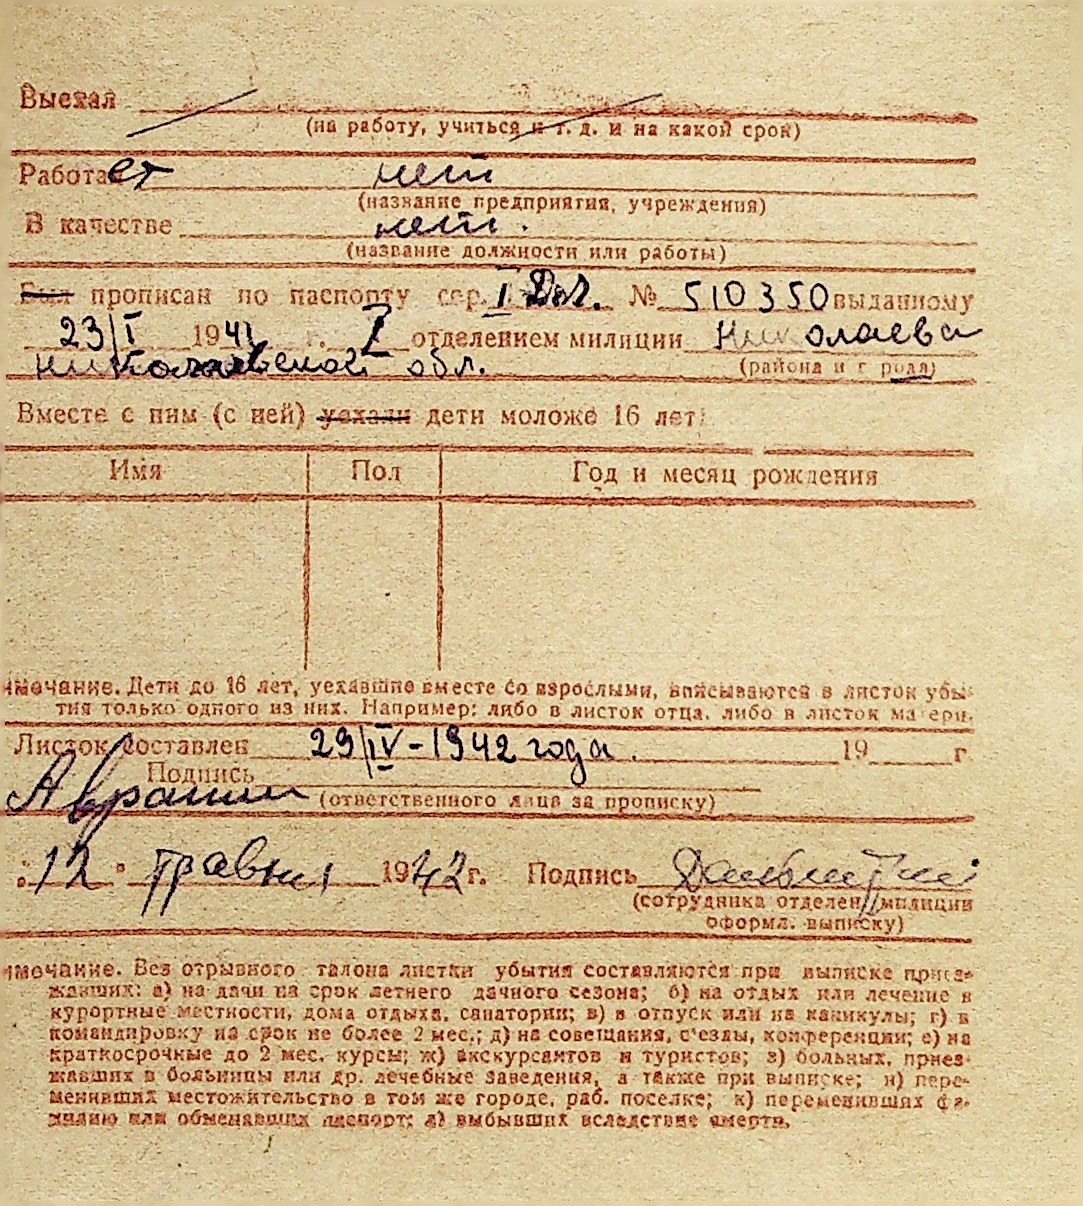 Выехал
(на работу, учиться и т. д. и на какой срок)
Работает нет
(название предприятия, учреждения)
В качестве нет.
(название должности или работы)
Был прописан по паспорту сер. I № 510350 выданному
23/I 1941 г. I отделением милиции Николаева
Николаевской обл. (района и города)
Вместе с ним (с ней) уехали дети моложе 16 лет:
Имя Пол Год и месяц рождения
имечание. Дети до 16 лет, уехавшие вместе со взрослыми, вписываются в листок убы-
тия только одного из них. Например: либо в листок отца, либо в листок матери.
Листок составлен 29/IV-1942 года. 19 г.
Подпись
(ответственного лица за прописку)
"12" травня 1942 г. Подпись
(сотрудника отделен. милиции
оформл. выписку)
имечание. Без отрывного талона листки убытия составляются при выписке приез-
жавших: а) на дачи на срок летнего дачного сезона; б) на отдых или лечение в
курортные местности, дома отдыха, санатории; в) в отпуск или на каникулы; г) в
командировку на срок не более 2 мес.; д) на совещания, с'езды, конференции; е) на
краткосрочные до 2 мес. курсы; ж) экскурсантов и туристов; з) больных, приез-
жавших в больницы или др. лечебные заведения, а также при выписке; и) пере-
менивших местожительство в том же городе, раб. поселке; к) переменивших фа-
милию или обменявших паспорт; л) выбывших вследствие смерти.